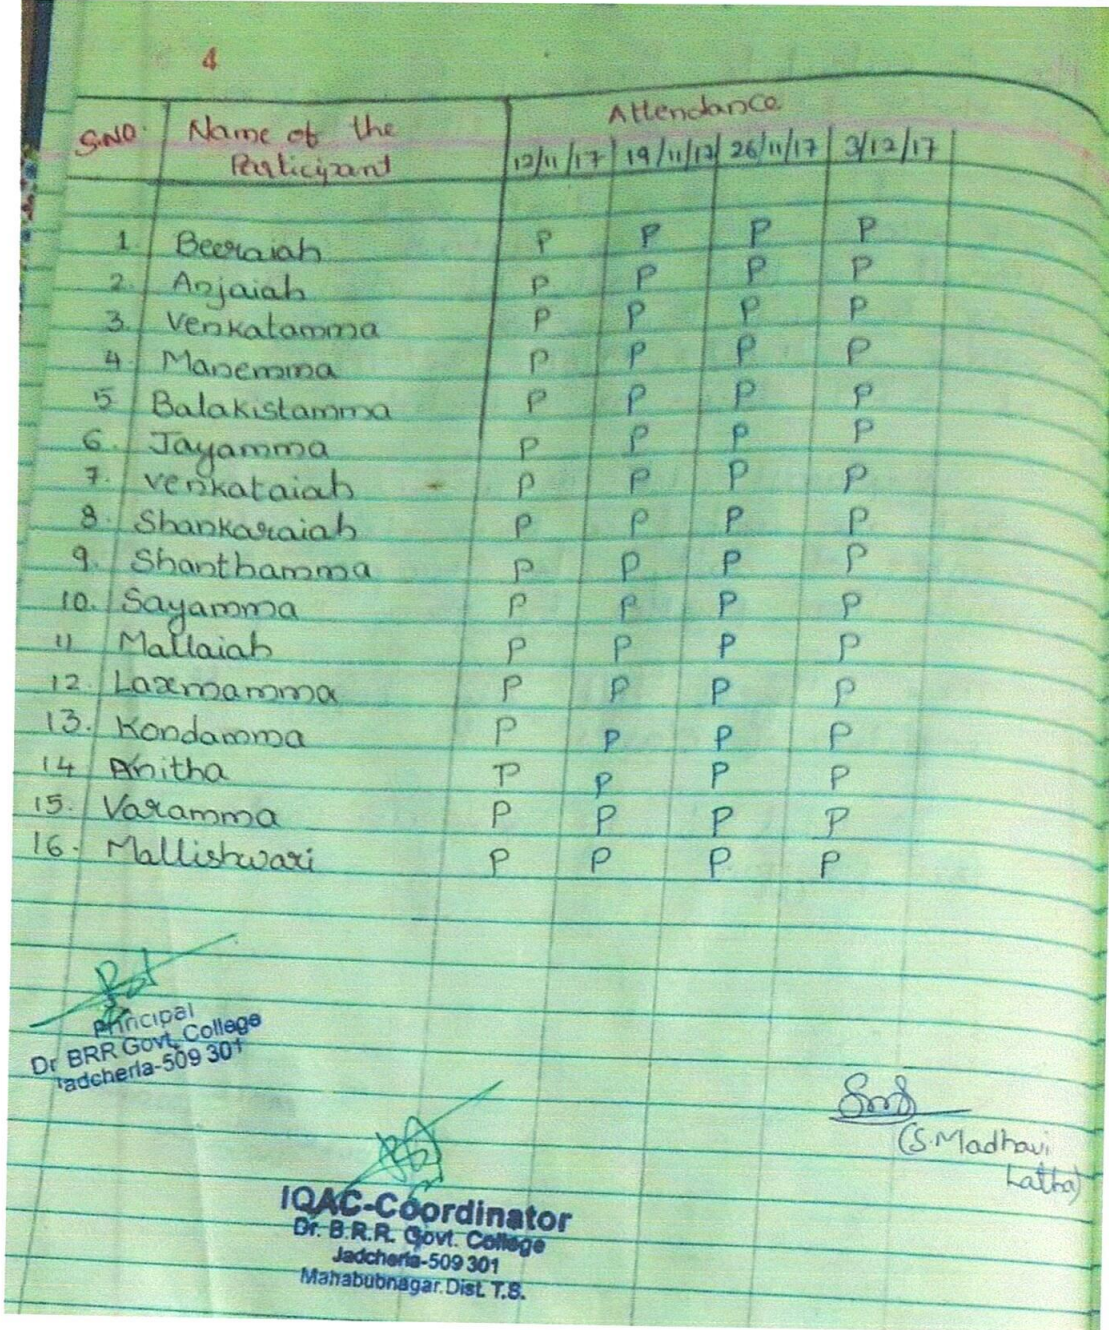 4
S.NO. Name of the Participant Attendance
12/11/17 19/11/17 26/11/17 3/12/17
1. Beeraiah P P P P
2. Anjaiah P P P P
3. Venkatamma P P P P
4. Manemma P P P P
5 Balakistamma P P P P
6. Jayamma P P P P
7. Venkataiah P P P P
8. Shankaraiah P P P P
9. Shanthamma P P P P
10. Sayamma P P P P
11 Mallaiah P P P P
12. Laxmamma P P P P
13. Kondamma P P P P
14 Anitha P P P P
15. Varamma P P P P
16. Mallishwari P P P P
Principal
Dr BRR Govt. College
Jadcherla-509 301
(S.Madhavi
Latha)
IQAC-Coordinator
Dr. B.R.R. Govt. College
Jadcherla-509 301
Mahabubnagar.Dist. T.S.